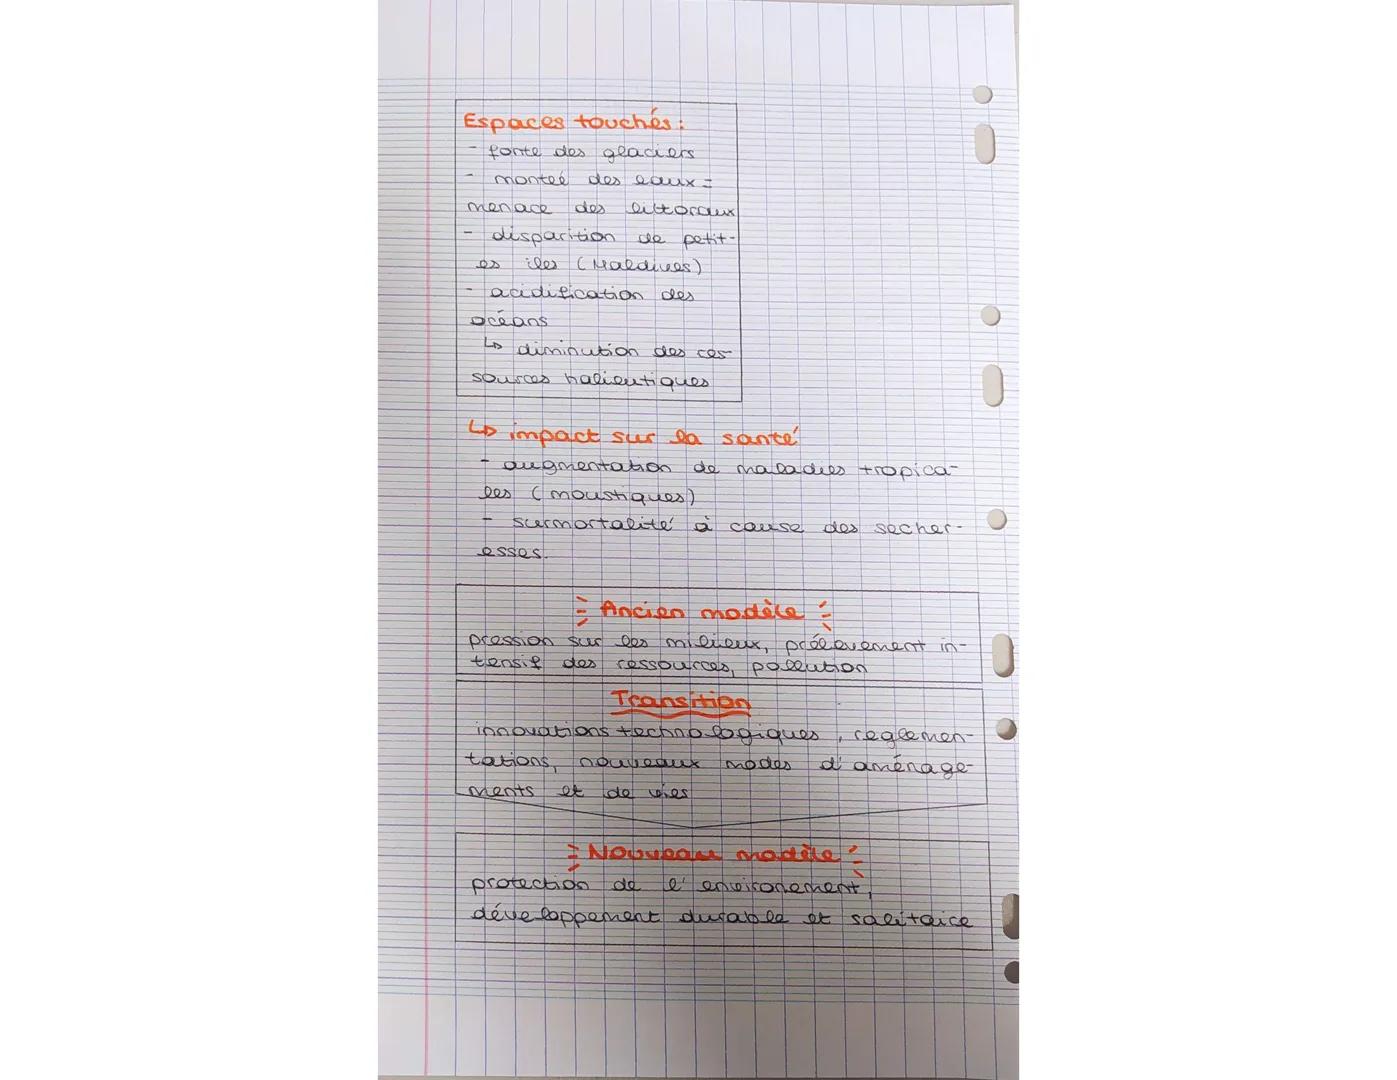 Espaces touchés :
- fonte des glaciers
- monteé des eaux =
menace des littoraux
- disparition de petit-
es iles (Maldives)
- acidification des
océans
↳ diminution des res-
sources halieutiques
↳ impact sur la santé
- augmentation de maladies tropica-
les (moustiques)
- surmortalité à cause des secher-
esses.
Ancien modèle
pression sur les milieux, prélevement in-
tensif des ressources, pollution
Transition
innovations technologiques, reglemen-
tations, nouveaux modes d'aménage-
ments et de vies
Nouveau modèle
protection de l'environement,
développement durable et salitaire